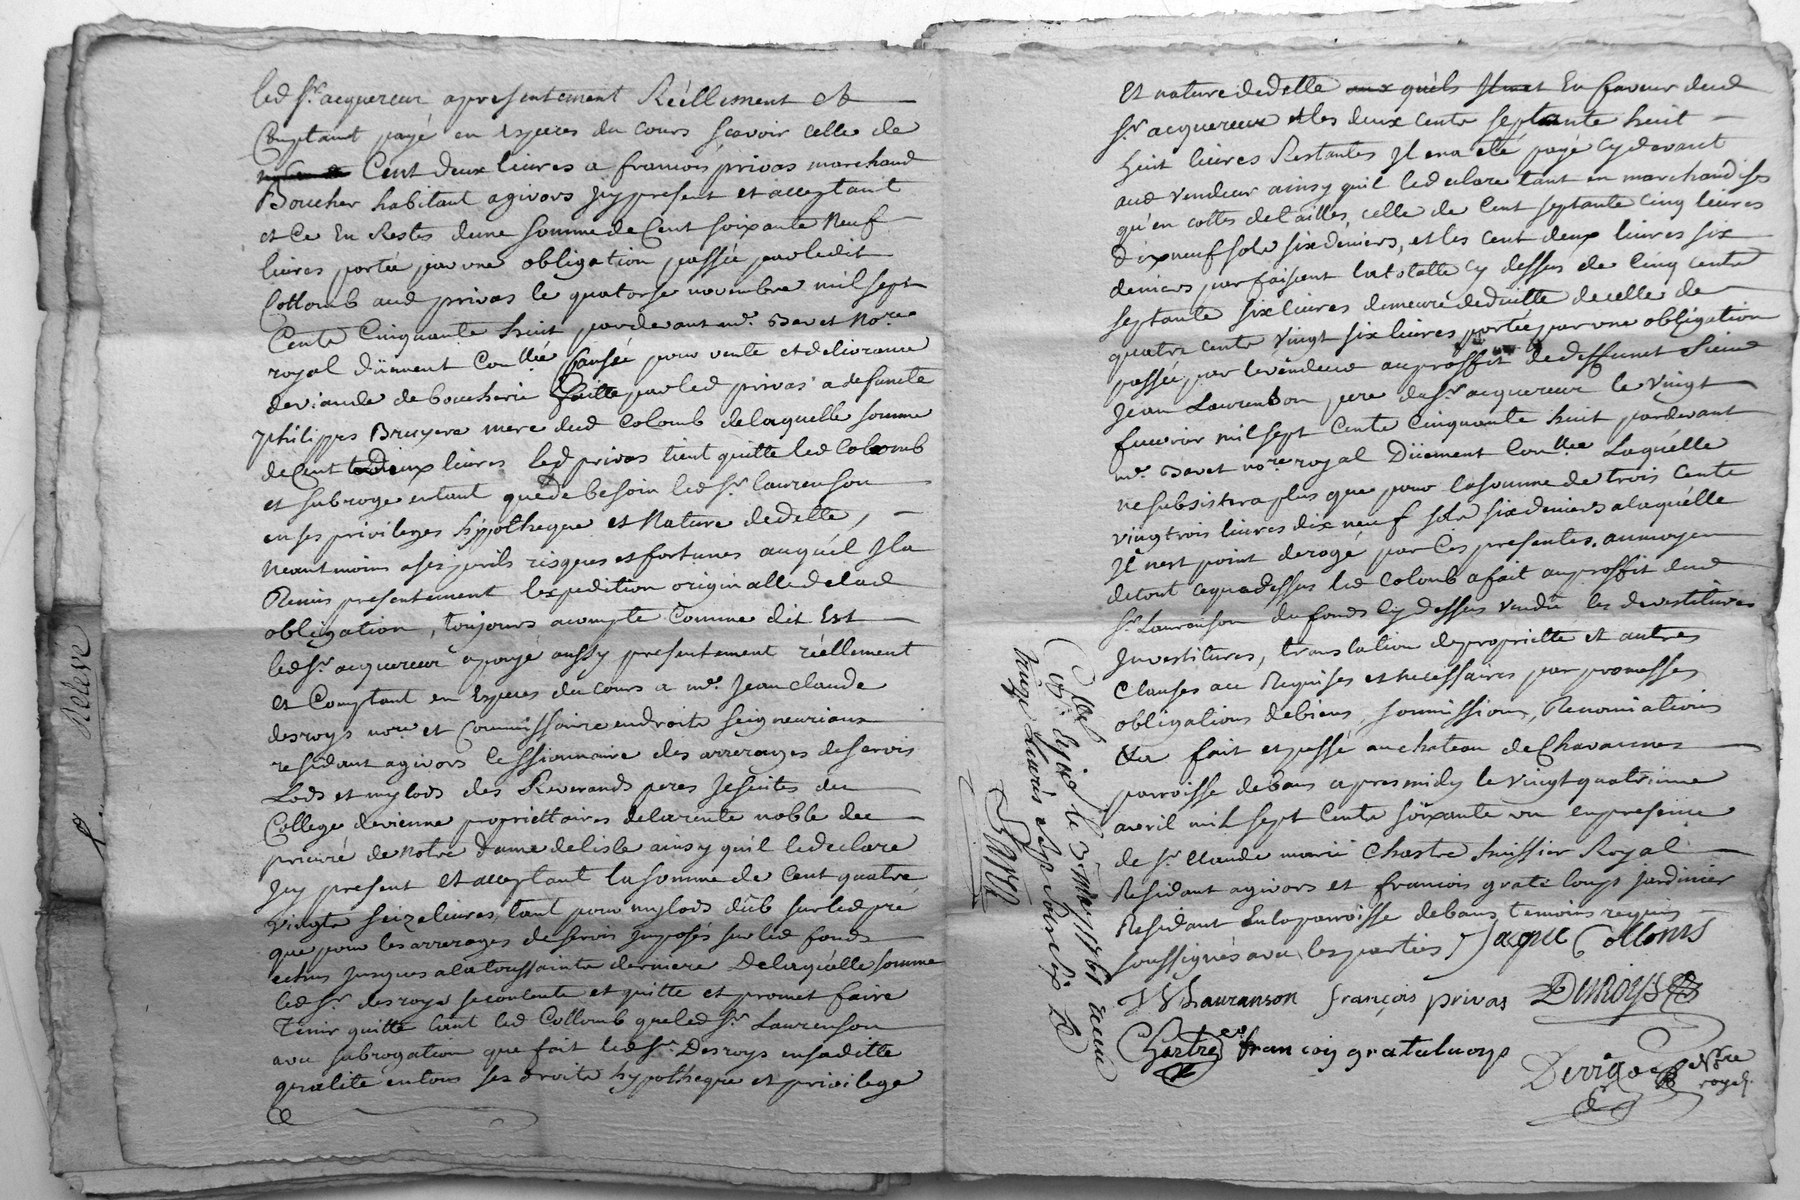 led Sr. acquereur apresentement Réellement et
Comptant payé en Especes du cours scavoir celle de
Cent deux livres a francois privas marchand
Boucher habitant agivors jcy present et acceptant
et Ce En Restes dune somme de Cent soixante Neuf
livres portée par une obligation passée par ledit
Collomb aud privas le quatorse novembre mil sept
Cents Cinquante huit pardevant me. Bavet Nore
royal düement Conllée Causée pour vente et delivrance
de viande de boucherie faitte par led privas a defuncte
philippe Bruyere mere dud Colomb de laquelle somme
de Cent deux livres led privas tient quitte led Colomb
et subroge entant que de besoin led Sr. laurenson
en ses privileges hypotheque et Nature dedette,
Neantmoins a ses perils risques et fortunes auquel Jl a
Remis presentement lexpedition originalle delad
obligation, toujours acompte Comme dit Est
led Sr. acquereur a payé aussy presentement réellement
et Comptant en Especes du cours a me. Jean claude
desroys nore. et Commissaire en droits seigneuriaux
residant agivors Cessionnaire des arrerages de servis
Lods et mylods des Reverands peres Jesuites du
College de vienne proprietaires de la rente noble du
prieuré de Notre dame de lisle ainsy quil ledeclare
Jcy present et acceptant la somme de Cent quatre
vingts seize livres, tant pour mylods dûs sur led pré
que pour les arrerages de servis jmposés sur led fonds
echus jusques a la toussaints derniere De laquelle somme
led Sr. desroys se contente et quitte et promet faire
Tenir quitte tant led Collomb que led Sr. Laurenson
avec subrogation que fait led Sr. Desroys en sa ditte
qualité en tous ses droits hypotheque et privilege
et nature dedette En faveur dud
Sr. acquereur et les deux cents septante huit
huit livres Restantes Jl en a eté payé cy devant
aud vendeur ainsy quil ledeclare tant en marchandises
qu'en cottes de tailles, celle de Cent septante cinq livres
dixneuf sols six deniers, et les cent deux livres six
deniers parfaisent la totalle cy dessus de Cinq cents
septante six livres demeure deduitte de celle de
quatre cents vingt six livres portée par une obligation
passée, par le vendeur au proffit de deffunt Sieur
Jean Laurenson pere du Sr. acquereur le vingt
fevrier mil sept Cents Cinquante huit pardevant
me. Bavet nore royal Düement Conllée Laquelle
ne subsistera plus que pour la somme de trois Cents
vingtrois livres dix neuf sols six deniers a laquelle
Jl n'est point derogé par Ces presentes. au moyen
de tout ce que dessus led Colomb a fait au proffit dud
Sr. Lauranson du fonds cy dessus vendu les devestitures
Jnvestitures, translation de proprietté et autres
Clauses au Requises et necessaires par promesses
obligations de biens, soumissions, Renonciations
&a fait et passé au chateau de Chavannes
parroisse de bans apres midy le vingt quatrieme
avril mil sept Cents soixante un en presence
de Sr. Claude marie Chastre huissier Royal
Residant agivors et francois grate loup jardinier
Residant En la parroisse de bans temoins requis
soussignés avec les parties Jaque Collomb
Lauranson françois privas Desroys
Chartre francois grateloup
Nore
royal.
le 3 mai 1761 Recu
Releve